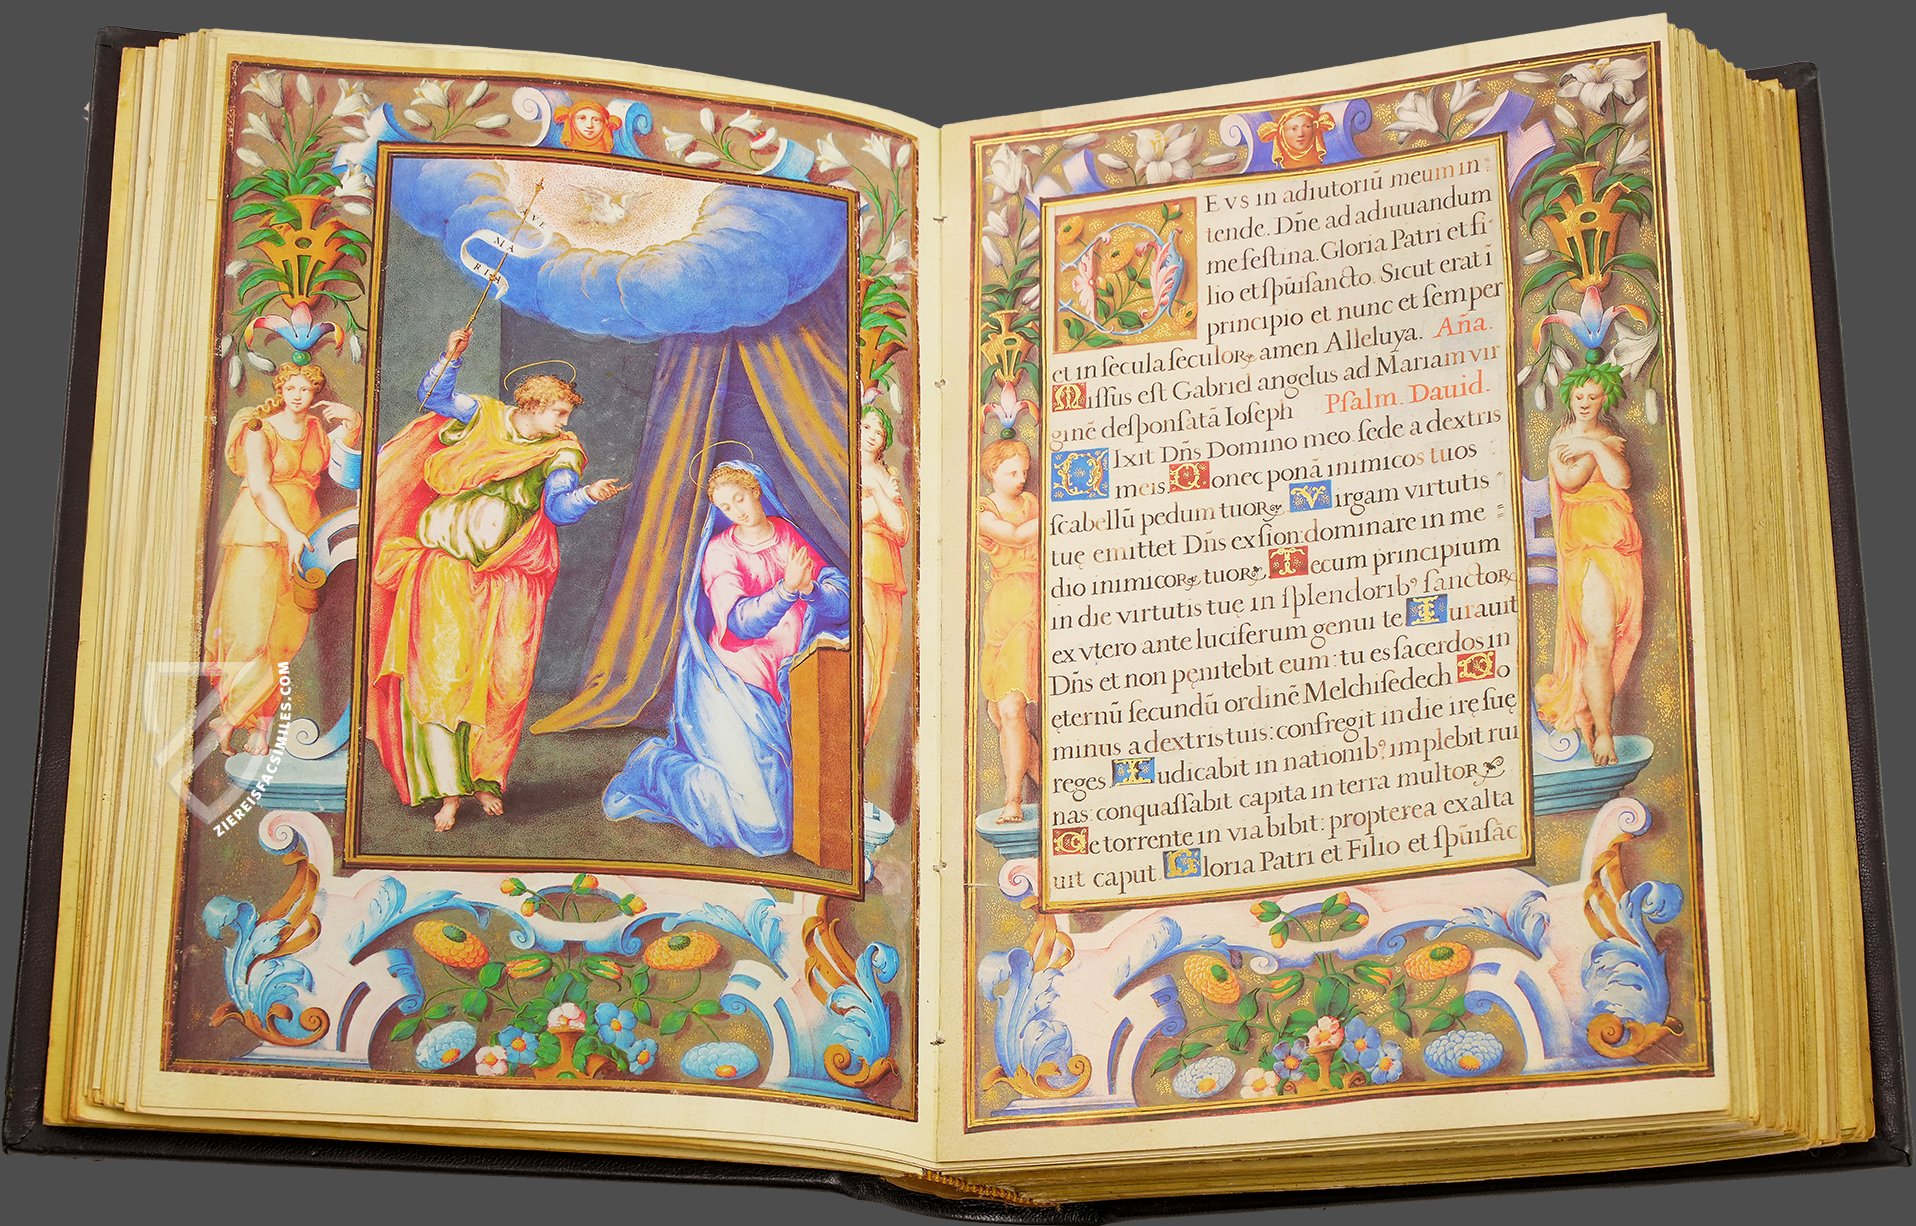 AVE
MA
RIA
DEVS in adiutoriũ meum in=
tende. Dñe ad adiuuandum
me feſtina. Gloria Patri et fi-
lio et ſpũiſancto. Sicut erat ĩ
principio et nunc et ſemper
et in ſecula ſeculoꝝ amen Alleluya. Aña.
Miſſus eſt Gabriel angelus ad Mariam vir
ginẽ deſponſatã Ioſeph Pſalm. Dauid.
DIxit Dñs Domino meo. ſede a dextris
meis. Donec ponã inimicos tuos
ſcabellũ pedum tuoꝝ Virgam virtutis
tuę emittet Dñs ex ſion: dominare in me=
dio inimicoꝝ tuoꝝ. Tecum principium
in die virtutis tuę in ſplendoribꝰ ſanctoꝝ
ex vtero ante luciferum genui te Iurauit
Dñs et non pęnitebit eum: tu es ſacerdos in
ęternũ ſecundũ ordinẽ Melchiſedech Do
minus a dextris tuis: confregit in die irę ſuę
reges Iudicabit in nationibꝰ, implebit rui
nas: conquaſſabit capita in terra multoꝝ
De torrente in via bibit: propterea exalta
uit caput Gloria Patri et Filio et ſpũiſãc
ZIEREISFACSIMILES.COM